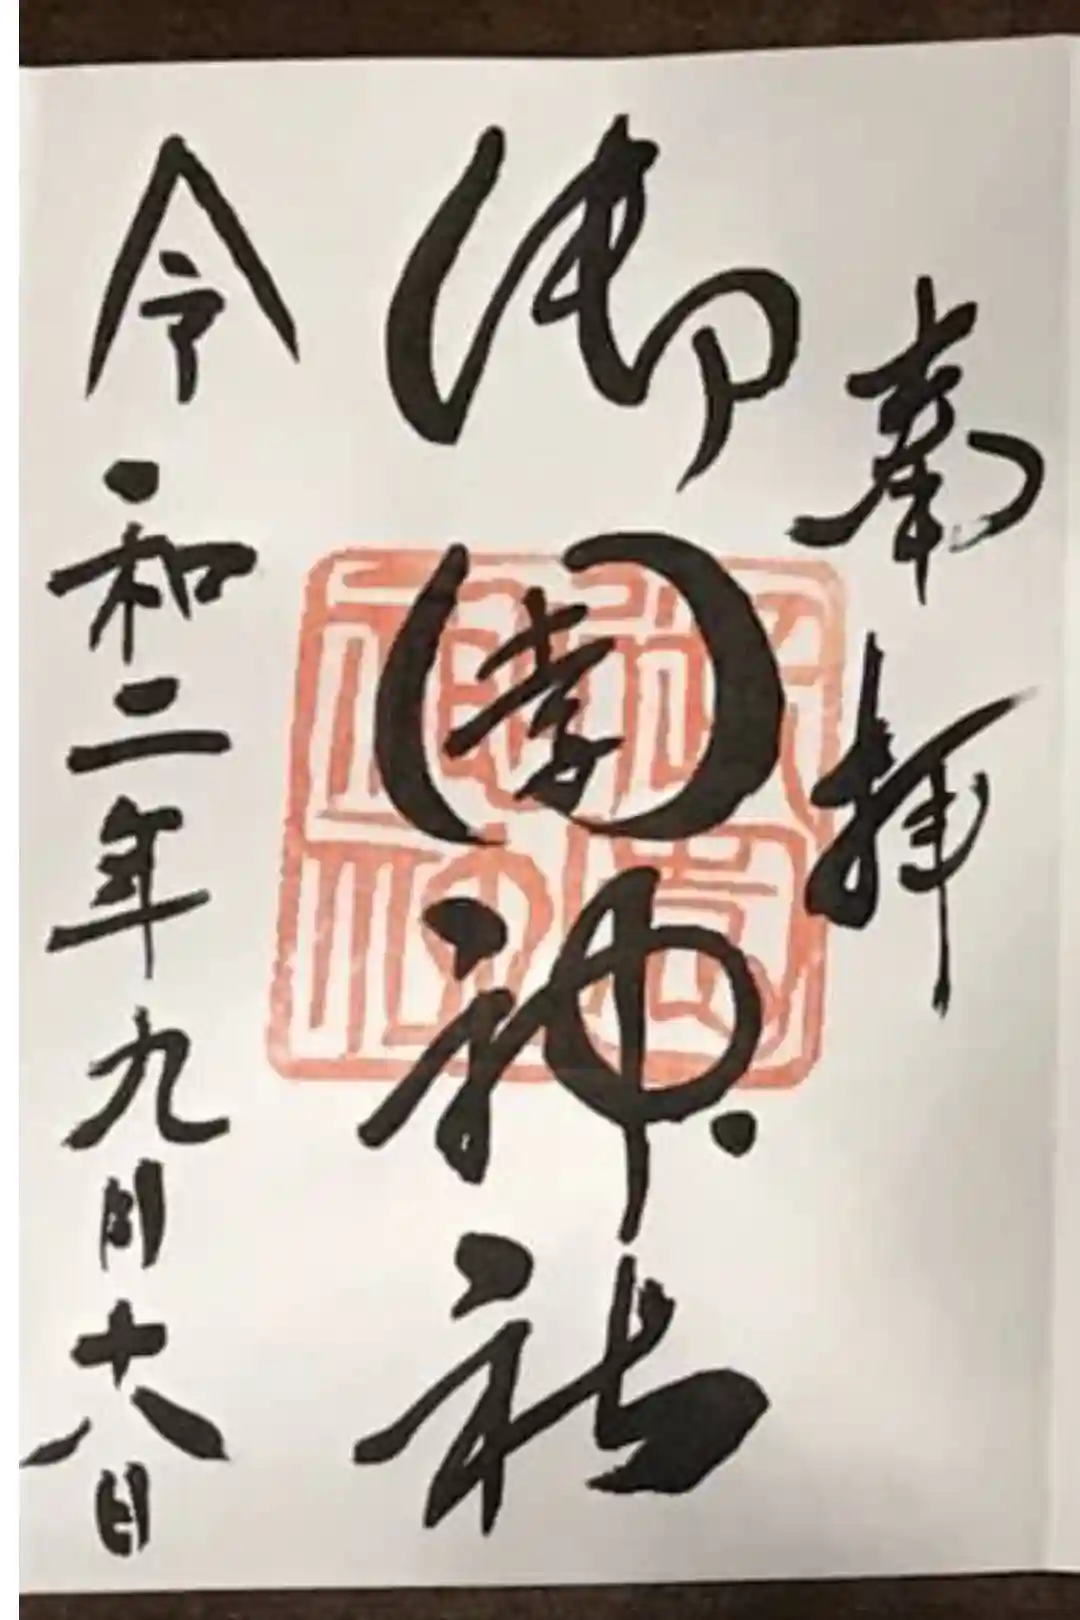 奉拝
御園神社
令和二年九月十八日